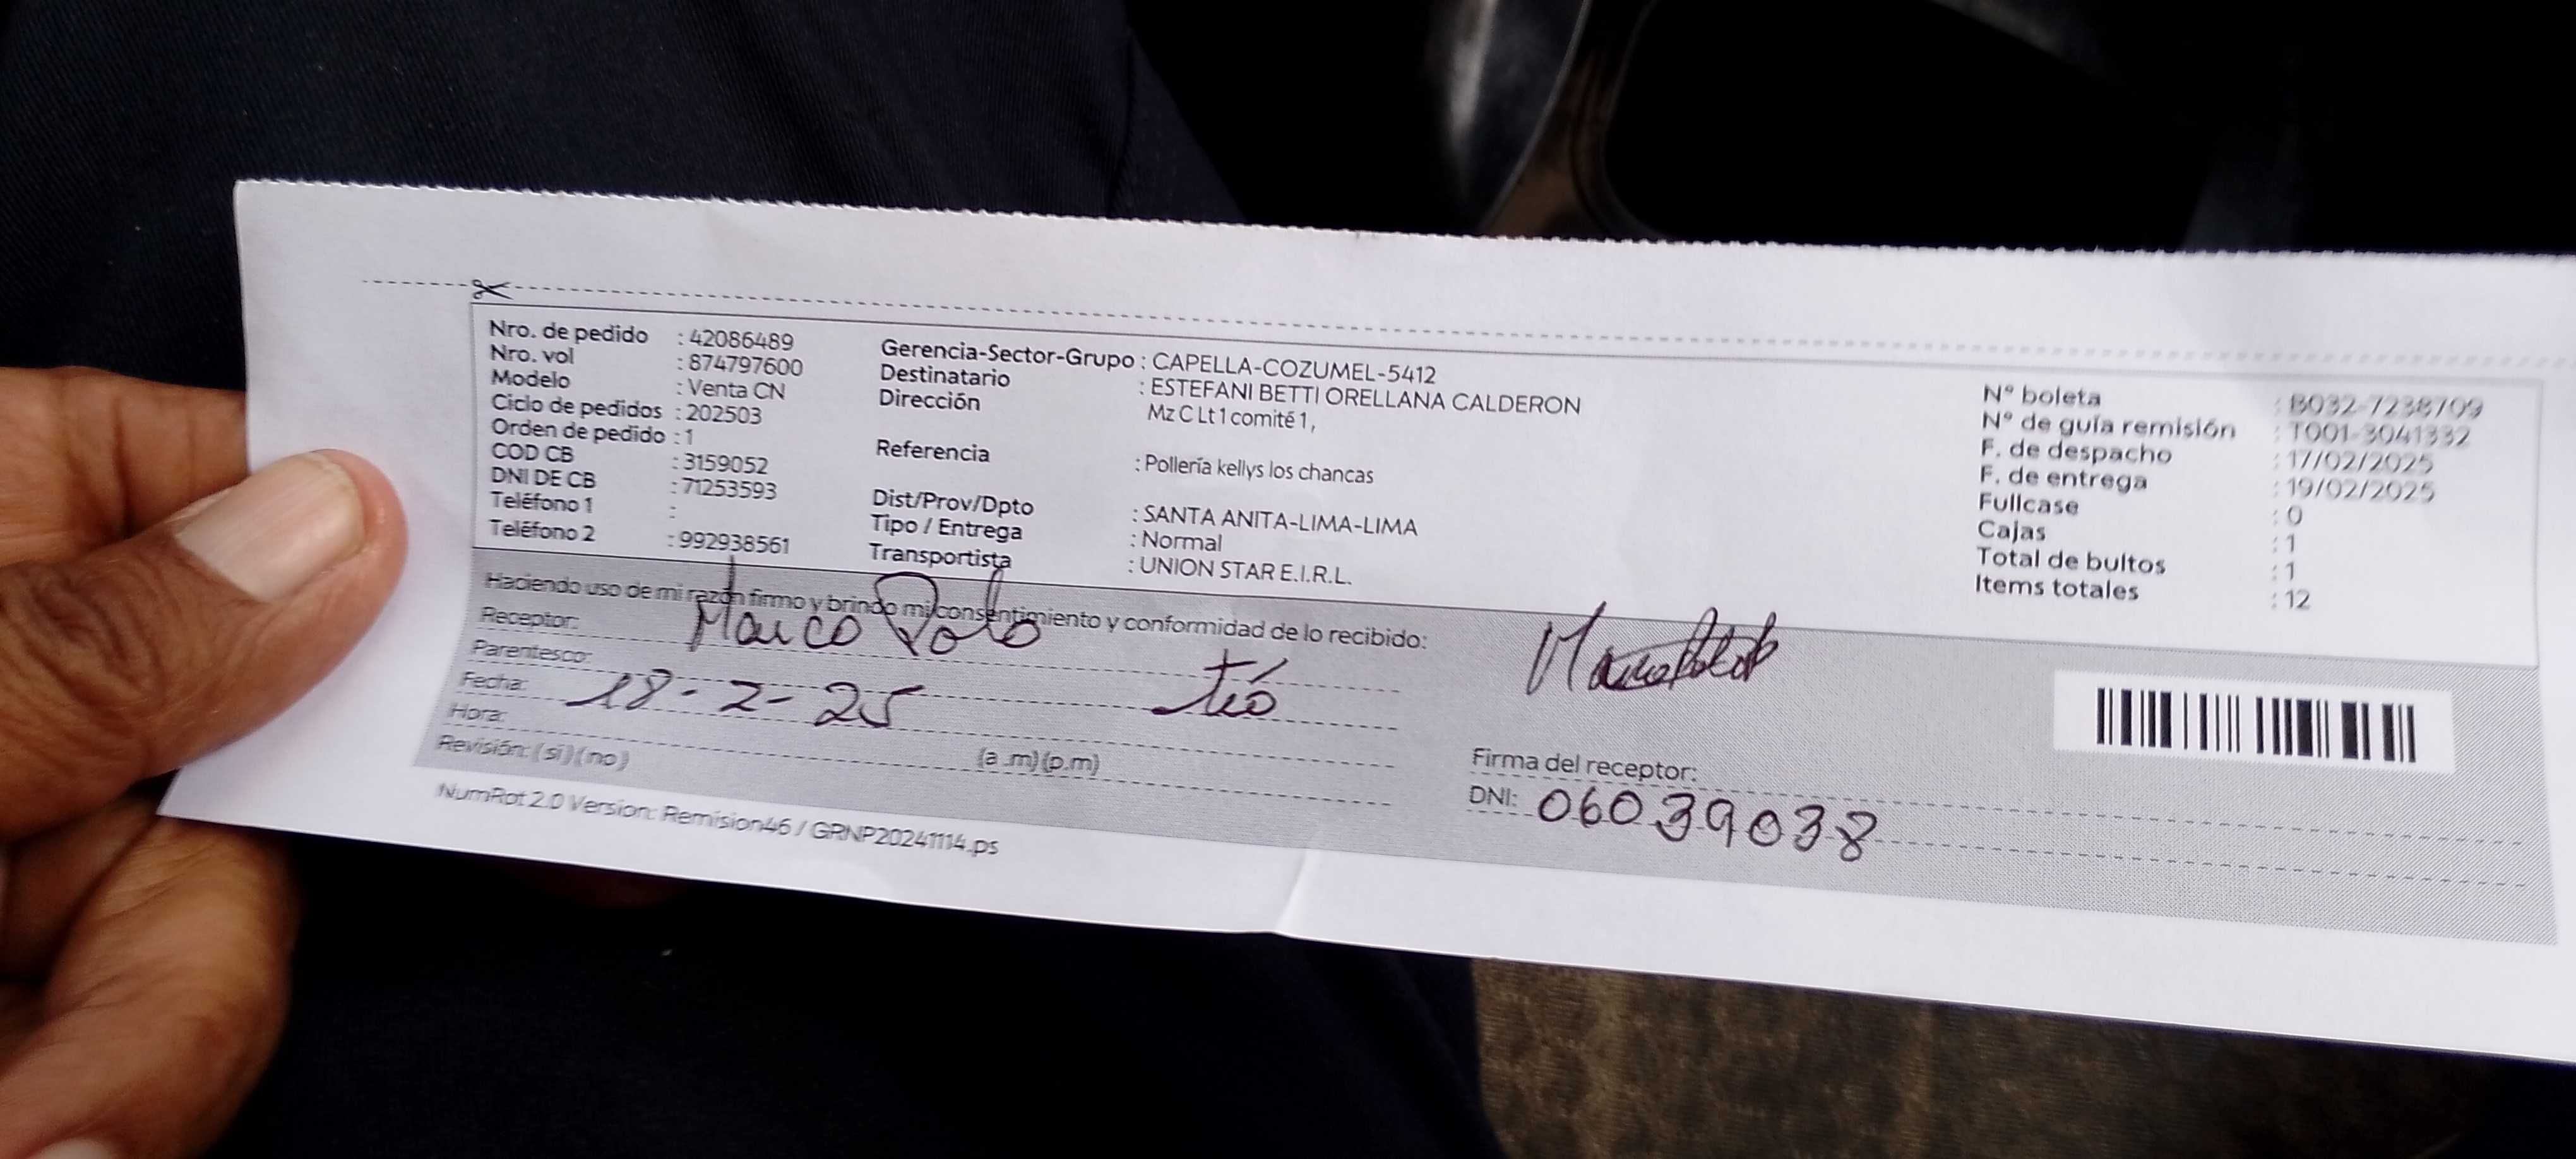 Nro. de pedido : 42086489
Nro. vol : 874797600
Modelo : Venta CN
Ciclo de pedidos : 202503
Orden de pedido : 1
COD CB : 3159052
DNI DE CB : 71253593
Teléfono 1 :
Teléfono 2 : 992938561
Gerencia-Sector-Grupo : CAPELLA-COZUMEL-5412
Destinatario : ESTEFANI BETTI ORELLANA CALDERON
Dirección Mz C Lt 1 comité 1,
Referencia : Pollería kellys los chancas
Dist/Prov/Dpto : SANTA ANITA-LIMA-LIMA
Tipo / Entrega : Normal
Transportista : UNION STAR E.I.R.L.
N° boleta : B032-7238709
N° de guía remisión : T001-3041332
F. de despacho : 17/02/2025
F. de entrega : 19/02/2025
Fullcase : 0
Cajas : 1
Total de bultos : 1
Items totales : 12
Haciendo uso de mi razón firmo y brindo mi consentimiento y conformidad de lo recibido:
Receptor: Marco Polo
Parentesco: tió
Fecha: 18-2-25
Hora: (a.m)(p.m)
Revisión: (si)(no)
Firma del receptor:
DNI: 06039038
NumRot 2.0 Version: Remision46 / GRNP20241114.ps